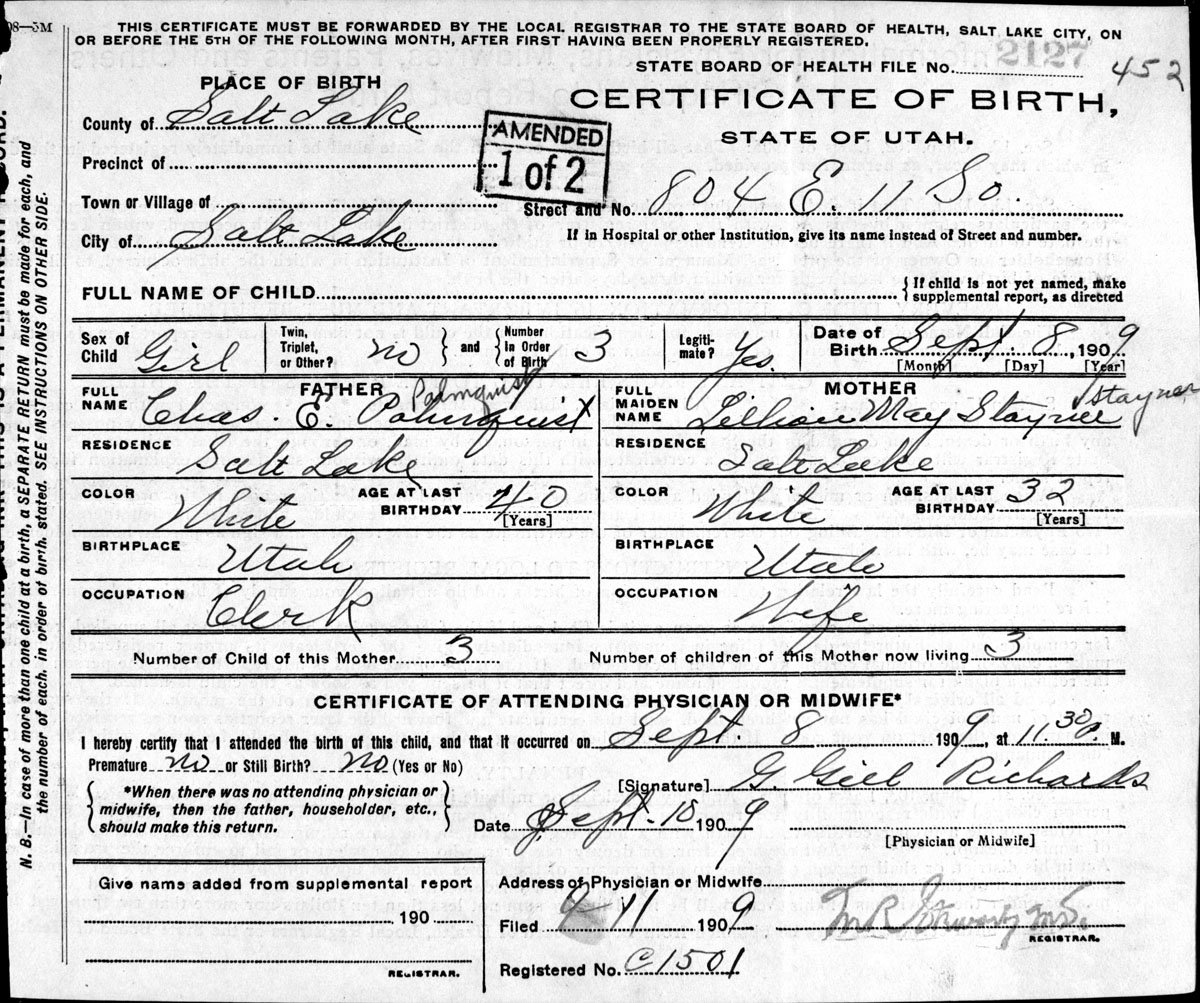 08—5M
THIS CERTIFICATE MUST BE FORWARDED BY THE LOCAL REGISTRAR TO THE STATE BOARD OF HEALTH, SALT LAKE CITY, ON
OR BEFORE THE 5TH OF THE FOLLOWING MONTH, AFTER FIRST HAVING BEEN PROPERLY REGISTERED.
STATE BOARD OF HEALTH FILE No. 2127 452
PLACE OF BIRTH
CERTIFICATE OF BIRTH,
STATE OF UTAH.
County of Salt Lake
AMENDED
1 of 2
Precinct of
Town or Village of
Street and No. 804 E 11 So
City of Salt Lake
If in Hospital or other Institution, give its name instead of Street and number.
FULL NAME OF CHILD
{ If child is not yet named, make
supplemental report, as directed
Sex of Child Girl
Twin, Triplet, or Other? no } and { Number in Order of Birth 3
Legitimate? Yes.
Date of Birth Sept. 8, 1909
[Month] [Day] [Year]
FATHER
FULL NAME Chas. E. Palmquist Palmquist
MOTHER
FULL MAIDEN NAME Lillian May Stayner Stayner
RESIDENCE Salt Lake
RESIDENCE Salt Lake
COLOR White AGE AT LAST BIRTHDAY 40 [Years]
COLOR White AGE AT LAST BIRTHDAY 32 [Years]
BIRTHPLACE Utah
BIRTHPLACE Utah
OCCUPATION Clerk
OCCUPATION Wife
Number of Child of this Mother 3
Number of children of this Mother now living 3
CERTIFICATE OF ATTENDING PHYSICIAN OR MIDWIFE*
I hereby certify that I attended the birth of this child, and that it occurred on Sept 8 1909, at 11.30 M.
Premature no or Still Birth? no (Yes or No)
{ *When there was no attending physician or
midwife, then the father, householder, etc.,
should make this return. }
[Signature] G Gill Richards
Date Sept. 10 1909
[Physician or Midwife]
Give name added from supplemental report
190
REGISTRAR.
Address of Physician or Midwife
Filed 9 11 1909
REGISTRAR.
Registered No. C1501
N. B.—In case of more than one child at a birth, a SEPARATE RETURN must be made for each, and
the number of each, in order of birth, stated. SEE INSTRUCTIONS ON OTHER SIDE.